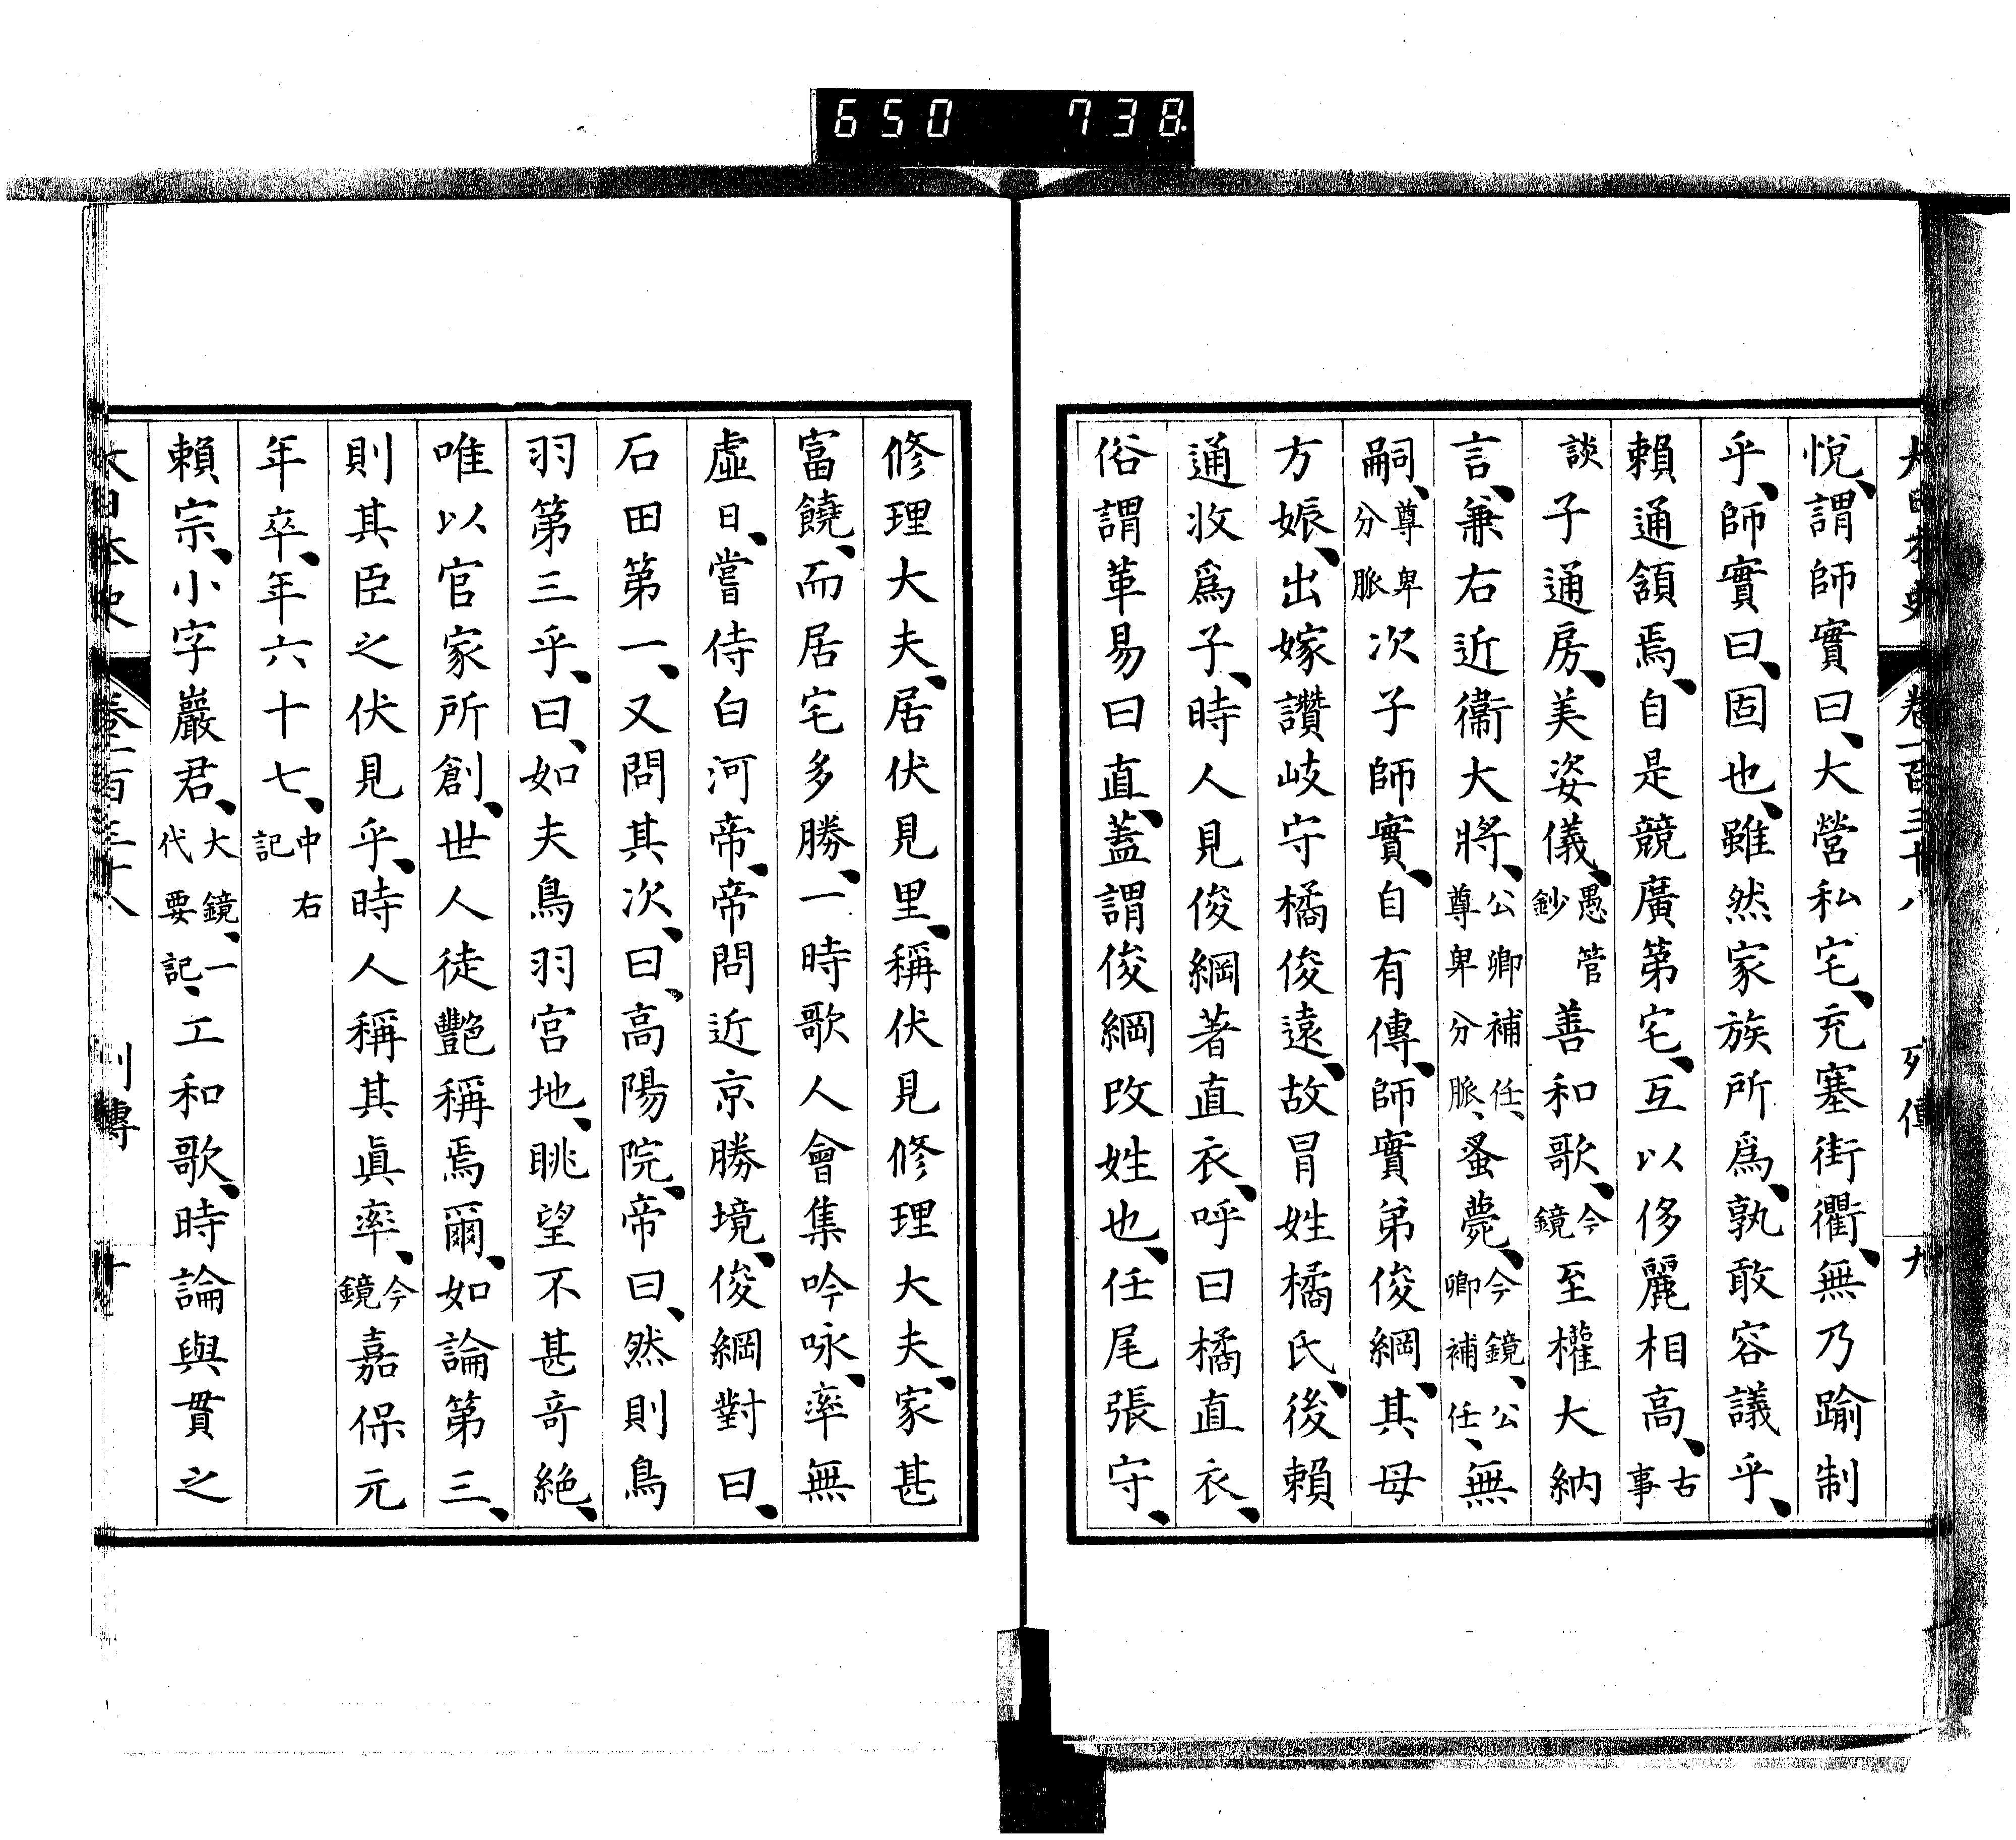 650 738
大日本史 卷一百三十八 列傳 九
悅、謂師實曰、大營私宅、充塞街衢、無乃踰制
乎、師實曰、固也、雖然家族所爲、孰敢容議乎、
賴通頷焉、自是競廣第宅、互以侈麗相高、古事
談子通房、美姿儀、愚管鈔善和歌、今鏡至權大納
言、兼右近衞大將、公卿補任、尊卑分脈、蚤薨、今鏡、公卿補任、無
嗣、尊卑分脈次子師實、自有傳、師實弟俊綱、其母
方娠、出嫁讚岐守橘俊遠、故冒姓橘氏、後賴
通收爲子、時人見俊綱著直衣、呼曰橘直衣、
俗謂革易曰直、蓋謂俊綱改姓也、任尾張守、
修理大夫、居伏見里、稱伏見修理大夫、家甚
富饒、而居宅多勝、一時歌人會集吟咏、率無
虛日、嘗侍白河帝、帝問近京勝境、俊綱對曰、
石田第一、又問其次、曰、高陽院、帝曰、然則鳥
羽第三乎、曰、如夫鳥羽宮地、眺望不甚奇絶、
唯以官家所創、世人徒艷稱焉爾、如論第三、
則其臣之伏見乎、時人稱其眞率、今鏡嘉保元
年卒、年六十七、中右記
賴宗、小字巖君、大鏡、一代要記、工和歌、時論與貫之
大日本史 卷一百三十八 列傳 十